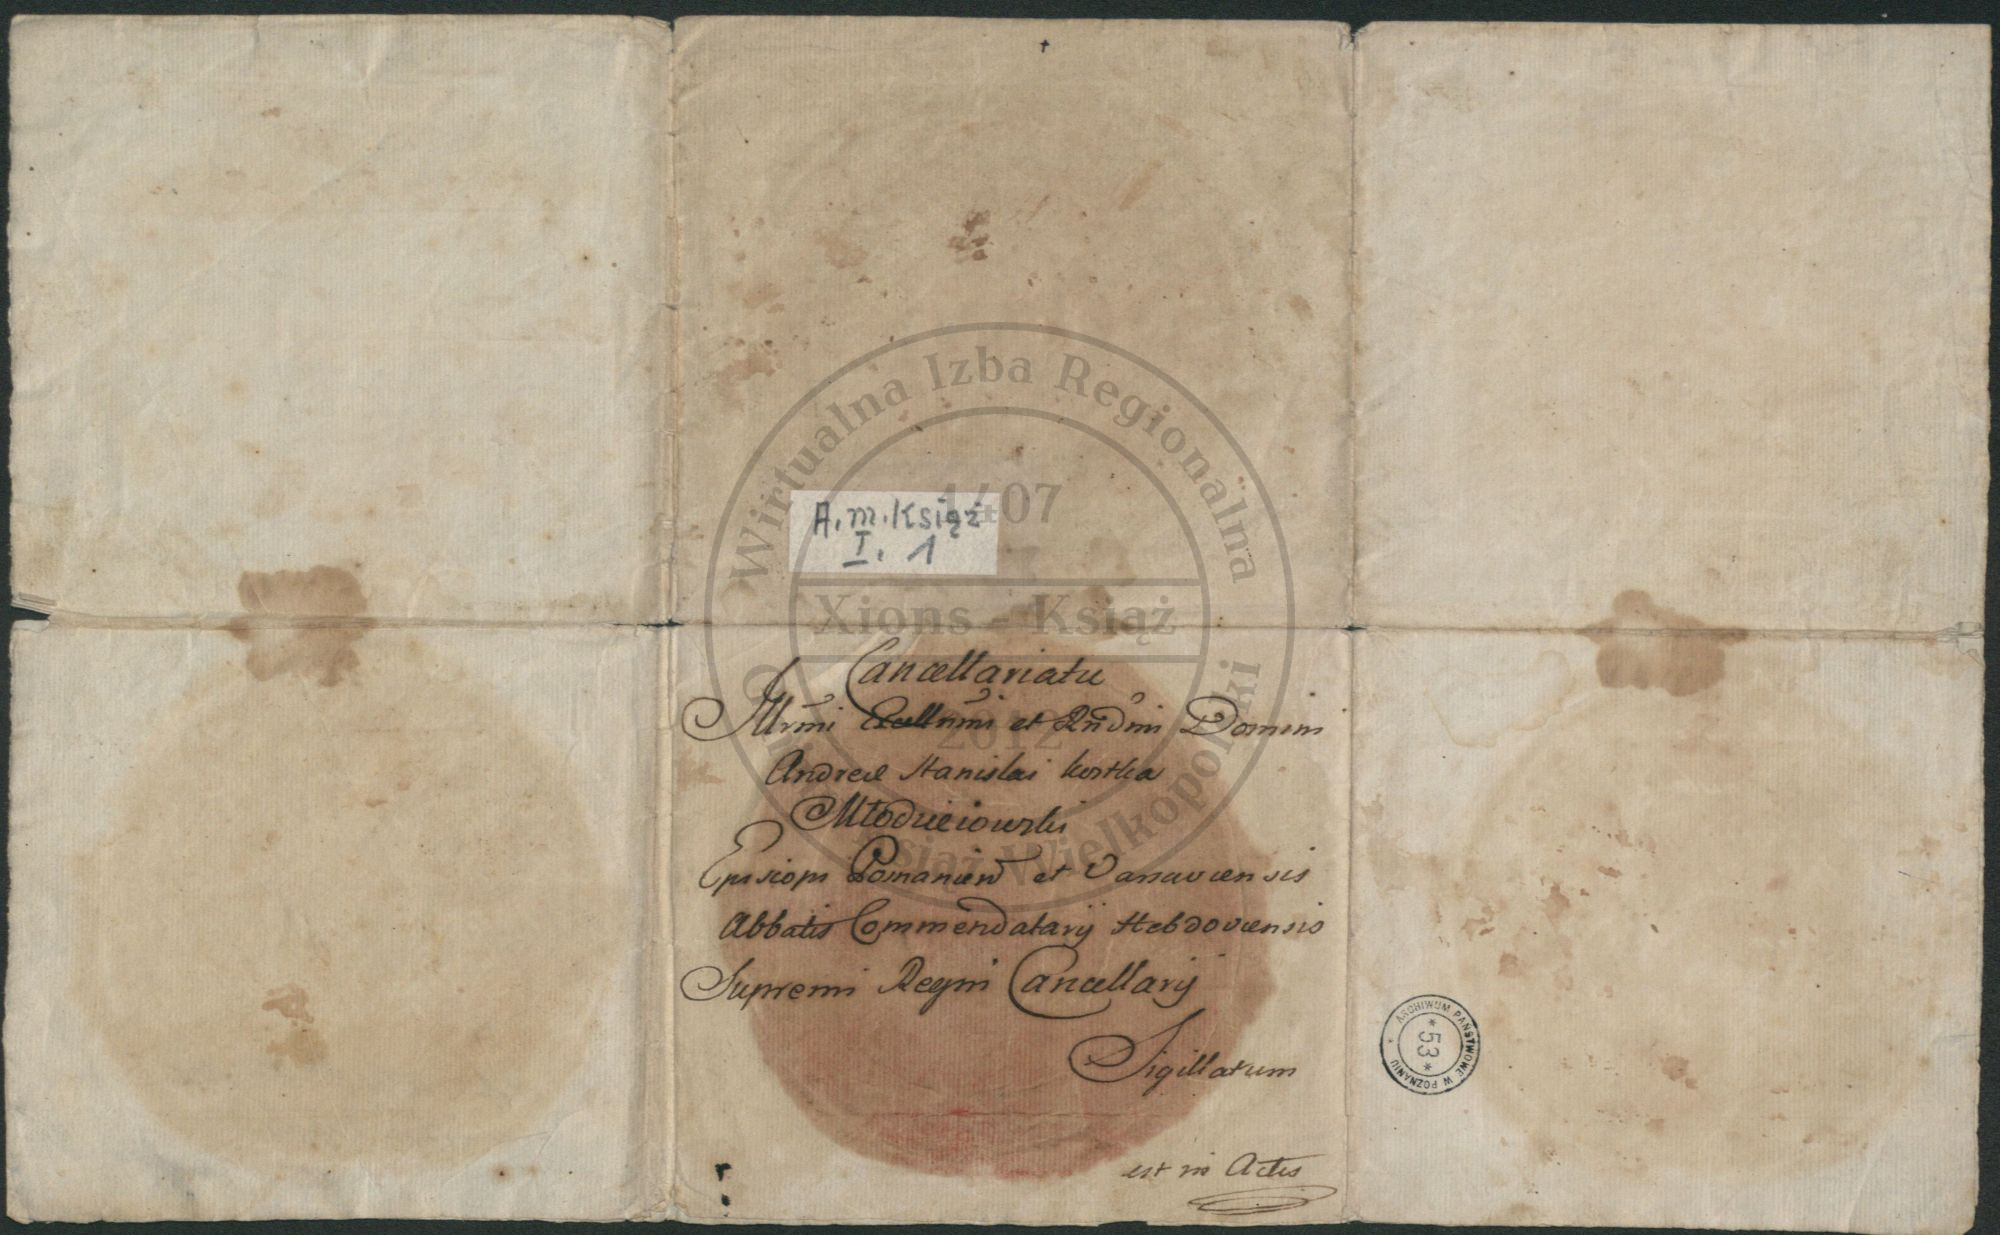 A. m. Książ
I. 1
Wirtualna Izba Regionalna
1407
Xions - Książ
2012
Gmina Książ Wielkopolski
Cancellariatu
Illrmi Excellmi et Rndmi Domini
Andreæ Stanislai Kostka
Młodzieiowski
Episcopi Posnanien et Varsaviensis
Abbatis Commendatarij Hebdoviensis
Supremi Regni Cancellarij
Sigillatum
est in Actis
* ARCHIWUM PAŃSTWOWE W POZNANIU
* 53 *